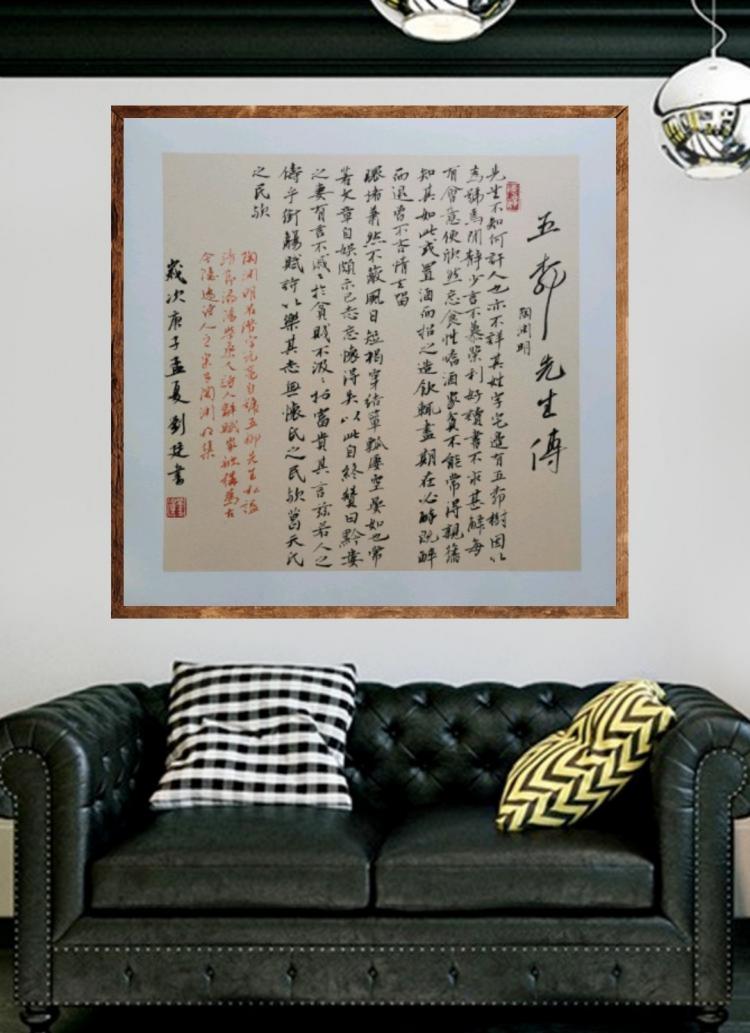 五柳先生傳
陶淵明
先生不知何許人也亦不詳其姓字宅邊有五柳樹因以
為號焉閑靜少言不慕榮利好讀書不求甚解每
有會意便欣然忘食性嗜酒家貧不能常得親舊
知其如此或置酒而招之造飲輒盡期在必醉既醉
而退曾不吝情去留
環堵蕭然不蔽風日短褐穿結簞瓢屢空晏如也常
著文章自娛頗示己志忘懷得失以此自終贊曰黔婁
之妻有言不戚〻於貧賤不汲〻於富貴其言茲若人之
儔乎銜觴賦詩以樂其志無懷氏之民歟葛天氏
之民歟
陶淵明名潛字元亮自號五柳先生私謚
靖節潯陽柴桑人詩人辭賦家被稱為古
今隱逸詩人之宗有陶淵明集
歲次庚子孟夏劉書